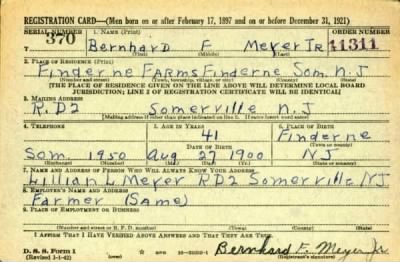 REGISTRATION CARD—(Men born on or after February 17, 1897 and on or before December 31, 1921)
SERIAL NUMBER 1. NAME (Print) ORDER NUMBER
T 370 Bernhard F Meyer Jr. 11311
(First) (Middle) (Last)
2. PLACE OF RESIDENCE (Print)
Finderne Farms Finderne Som. N.J
(Number and street) (Town, township, village, or city) (County) (State)
[THE PLACE OF RESIDENCE GIVEN ON THE LINE ABOVE WILL DETERMINE LOCAL BOARD
JURISDICTION; LINE 2 OF REGISTRATION CERTIFICATE WILL BE IDENTICAL]
3. MAILING ADDRESS
R.D2 Somerville N.J
[Mailing address if other than place indicated on line 2. If same insert word same]
4. TELEPHONE 5. AGE IN YEARS 6. PLACE OF BIRTH
41 Finderne
DATE OF BIRTH (Town or county)
Som. 1950 Aug 27 1900 NJ
(Exchange) (Number) (Mo.) (Day) (Yr.) (State or country)
7. NAME AND ADDRESS OF PERSON WHO WILL ALWAYS KNOW YOUR ADDRESS
Lillian L Meyer RD2 Somerville NJ
8. EMPLOYER'S NAME AND ADDRESS
Farmer (Same)
9. PLACE OF EMPLOYMENT OR BUSINESS
(Number and street or R. F. D. number) (Town) (County) (State)
I AFFIRM THAT I HAVE VERIFIED ABOVE ANSWERS AND THAT THEY ARE TRUE.
D. S. S. Form 1
(Revised 1-1-42) (over) Bernhard F. Meyer Jr